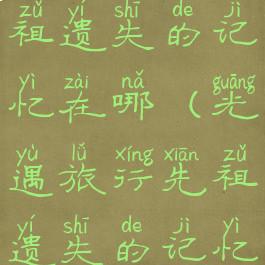 zǔ yí shī de jì
祖遗失的记
yì zài nǎ guāng
忆在哪(光
yù lǚ xíng xiān zǔ
遇旅行先祖
yí shī de jì yì
遗失的记忆